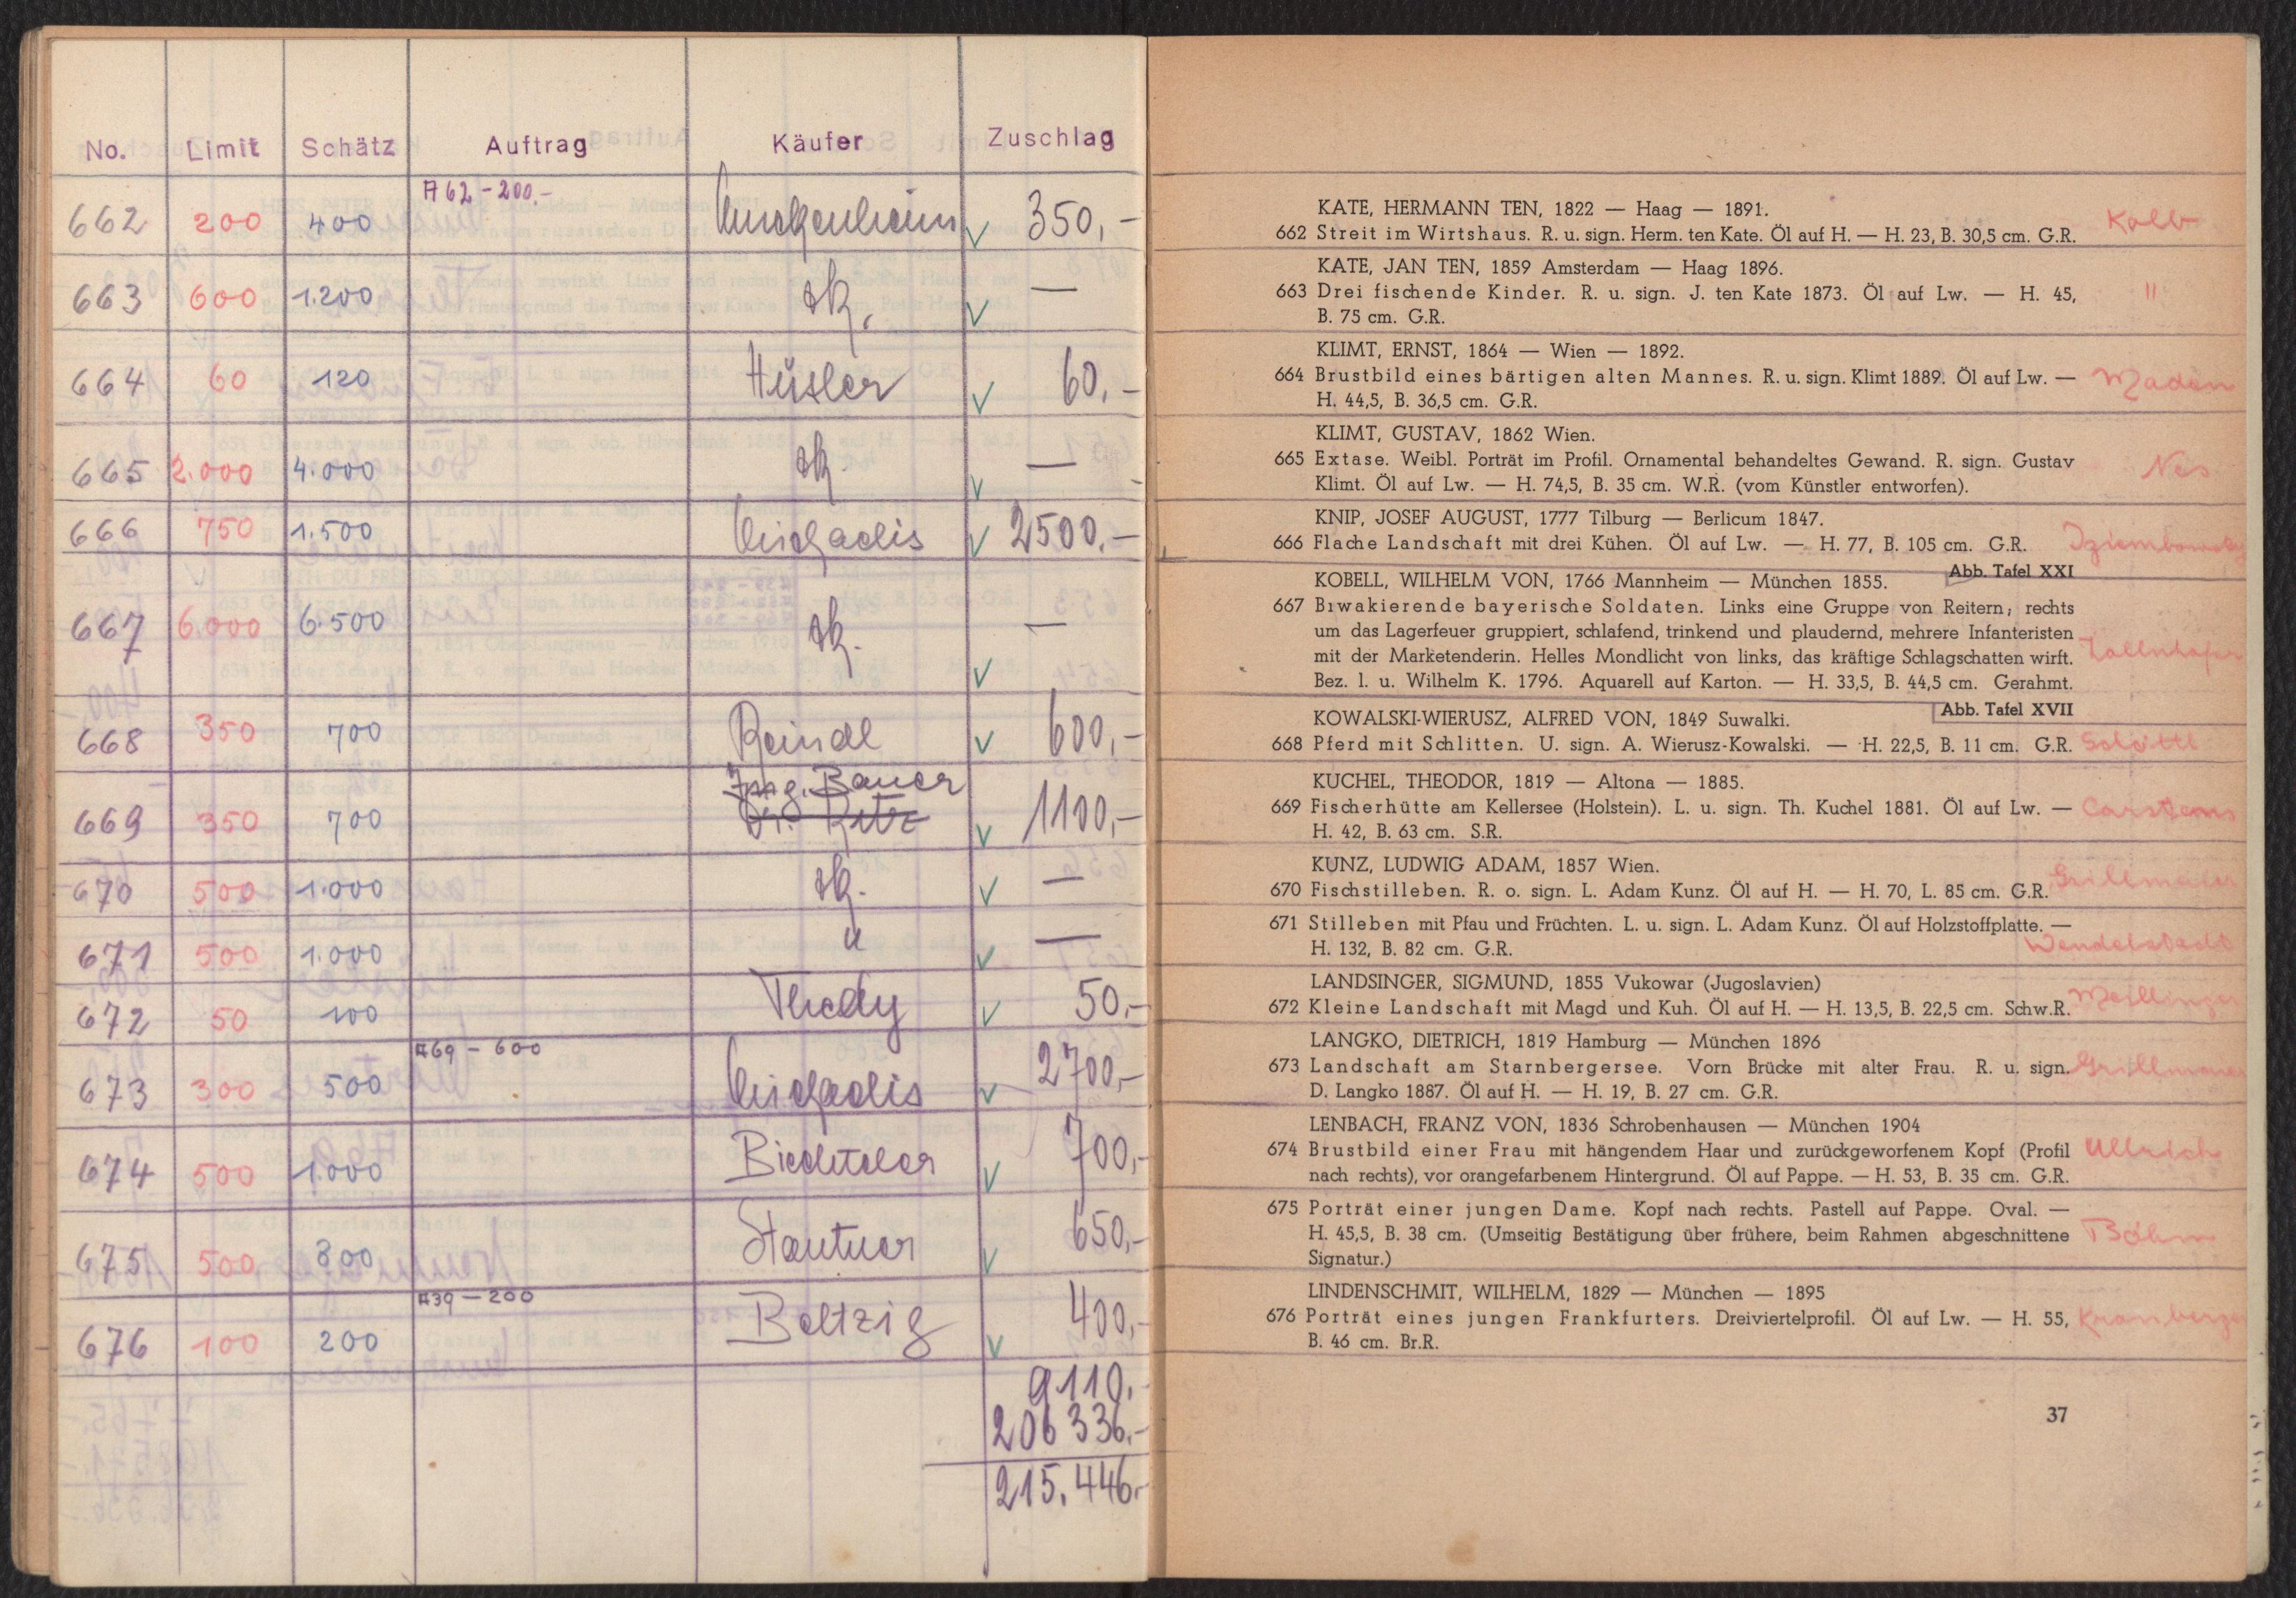 No. Limit Schätz Auftrag Käufer Zuschlag
A 62 - 200.-
662 200 400 350,-
663 600 1.200 —
664 60 120 Hüsler 60,-
665 2.000 4.000 —
666 750 1.500 2500,-
667 6.000 6.500 —
668 350 700 Reindl 600,-
Ing. Bauer
669 350 700 1100,-
670 500 1.000 —
671 500 1.000 " —
672 50 100 Thedy 50,-
A69 - 600
673 300 500 2700,-
674 500 1.000 700,-
675 500 800 Stautner 650,-
A39 - 200
676 100 200 Beltzig 400,-
9110,-
206 336,-
215.446,-
KATE, HERMANN TEN, 1822 — Haag — 1891.
662 Streit im Wirtshaus. R. u. sign. Herm. ten Kate. Öl auf H. — H. 23, B. 30,5 cm. G.R. Kolb
KATE, JAN TEN, 1859 Amsterdam — Haag 1896.
663 Drei fischende Kinder. R. u. sign. J. ten Kate 1873. Öl auf Lw. — H. 45, "
B. 75 cm. G.R.
KLIMT, ERNST, 1864 — Wien — 1892.
664 Brustbild eines bärtigen alten Mannes. R. u. sign. Klimt 1889. Öl auf Lw. —
H. 44,5, B. 36,5 cm. G.R.
KLIMT, GUSTAV, 1862 Wien.
665 Extase. Weibl. Porträt im Profil. Ornamental behandeltes Gewand. R. sign. Gustav
Klimt. Öl auf Lw. — H. 74,5, B. 35 cm. W.R. (vom Künstler entworfen).
KNIP, JOSEF AUGUST, 1777 Tilburg — Berlicum 1847.
666 Flache Landschaft mit drei Kühen. Öl auf Lw. — H. 77, B. 105 cm. G.R.
Abb. Tafel XXI
KOBELL, WILHELM VON, 1766 Mannheim — München 1855.
667 Biwakierende bayerische Soldaten. Links eine Gruppe von Reitern; rechts
um das Lagerfeuer gruppiert, schlafend, trinkend und plaudernd, mehrere Infanteristen
mit der Marketenderin. Helles Mondlicht von links, das kräftige Schlagschatten wirft.
Bez. l. u. Wilhelm K. 1796. Aquarell auf Karton. — H. 33,5, B. 44,5 cm. Gerahmt.
Abb. Tafel XVII
KOWALSKI-WIERUSZ, ALFRED VON, 1849 Suwalki.
668 Pferd mit Schlitten. U. sign. A. Wierusz-Kowalski. — H. 22,5, B. 11 cm. G.R. Schöttl
KUCHEL, THEODOR, 1819 — Altona — 1885.
669 Fischerhütte am Kellersee (Holstein). L. u. sign. Th. Kuchel 1881. Öl auf Lw. — Carstens
H. 42, B. 63 cm. S.R.
KUNZ, LUDWIG ADAM, 1857 Wien.
670 Fischstilleben. R. o. sign. L. Adam Kunz. Öl auf H. — H. 70, L. 85 cm. G.R. Grillmaier
671 Stilleben mit Pfau und Früchten. L. u. sign. L. Adam Kunz. Öl auf Holzstoffplatte. —
H. 132, B. 82 cm. G.R. Wendelstadt
LANDSINGER, SIGMUND, 1855 Vukowar (Jugoslavien)
672 Kleine Landschaft mit Magd und Kuh. Öl auf H. — H. 13,5, B. 22,5 cm. Schw.R. Meillinger
LANGKO, DIETRICH, 1819 Hamburg — München 1896
673 Landschaft am Starnbergersee. Vorn Brücke mit alter Frau. R. u. sign. Grillmaier
D. Langko 1887. Öl auf H. — H. 19, B. 27 cm. G.R.
LENBACH, FRANZ VON, 1836 Schrobenhausen — München 1904
674 Brustbild einer Frau mit hängendem Haar und zurückgeworfenem Kopf (Profil Ullrich
nach rechts), vor orangefarbenem Hintergrund. Öl auf Pappe. — H. 53, B. 35 cm. G.R.
675 Porträt einer jungen Dame. Kopf nach rechts. Pastell auf Pappe. Oval. —
H. 45,5, B. 38 cm. (Umseitig Bestätigung über frühere, beim Rahmen abgeschnittene Böhm
Signatur.)
LINDENSCHMIT, WILHELM, 1829 — München — 1895
676 Porträt eines jungen Frankfurters. Dreiviertelprofil. Öl auf Lw. — H. 55, Kronberger
B. 46 cm. Br.R.
37